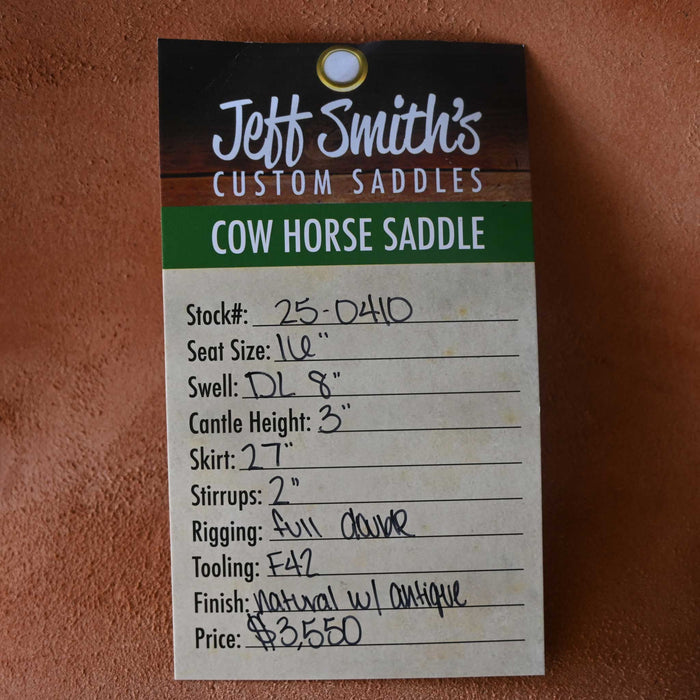 Jeff Smith's
CUSTOM SADDLES
COW HORSE SADDLE
Stock#: 25-0410
Seat Size: 16"
Swell: DL 8"
Cantle Height: 3"
Skirt: 27"
Stirrups: 2"
Rigging: full double
Tooling: F42
Finish: natural w/ antique
Price: $3,550